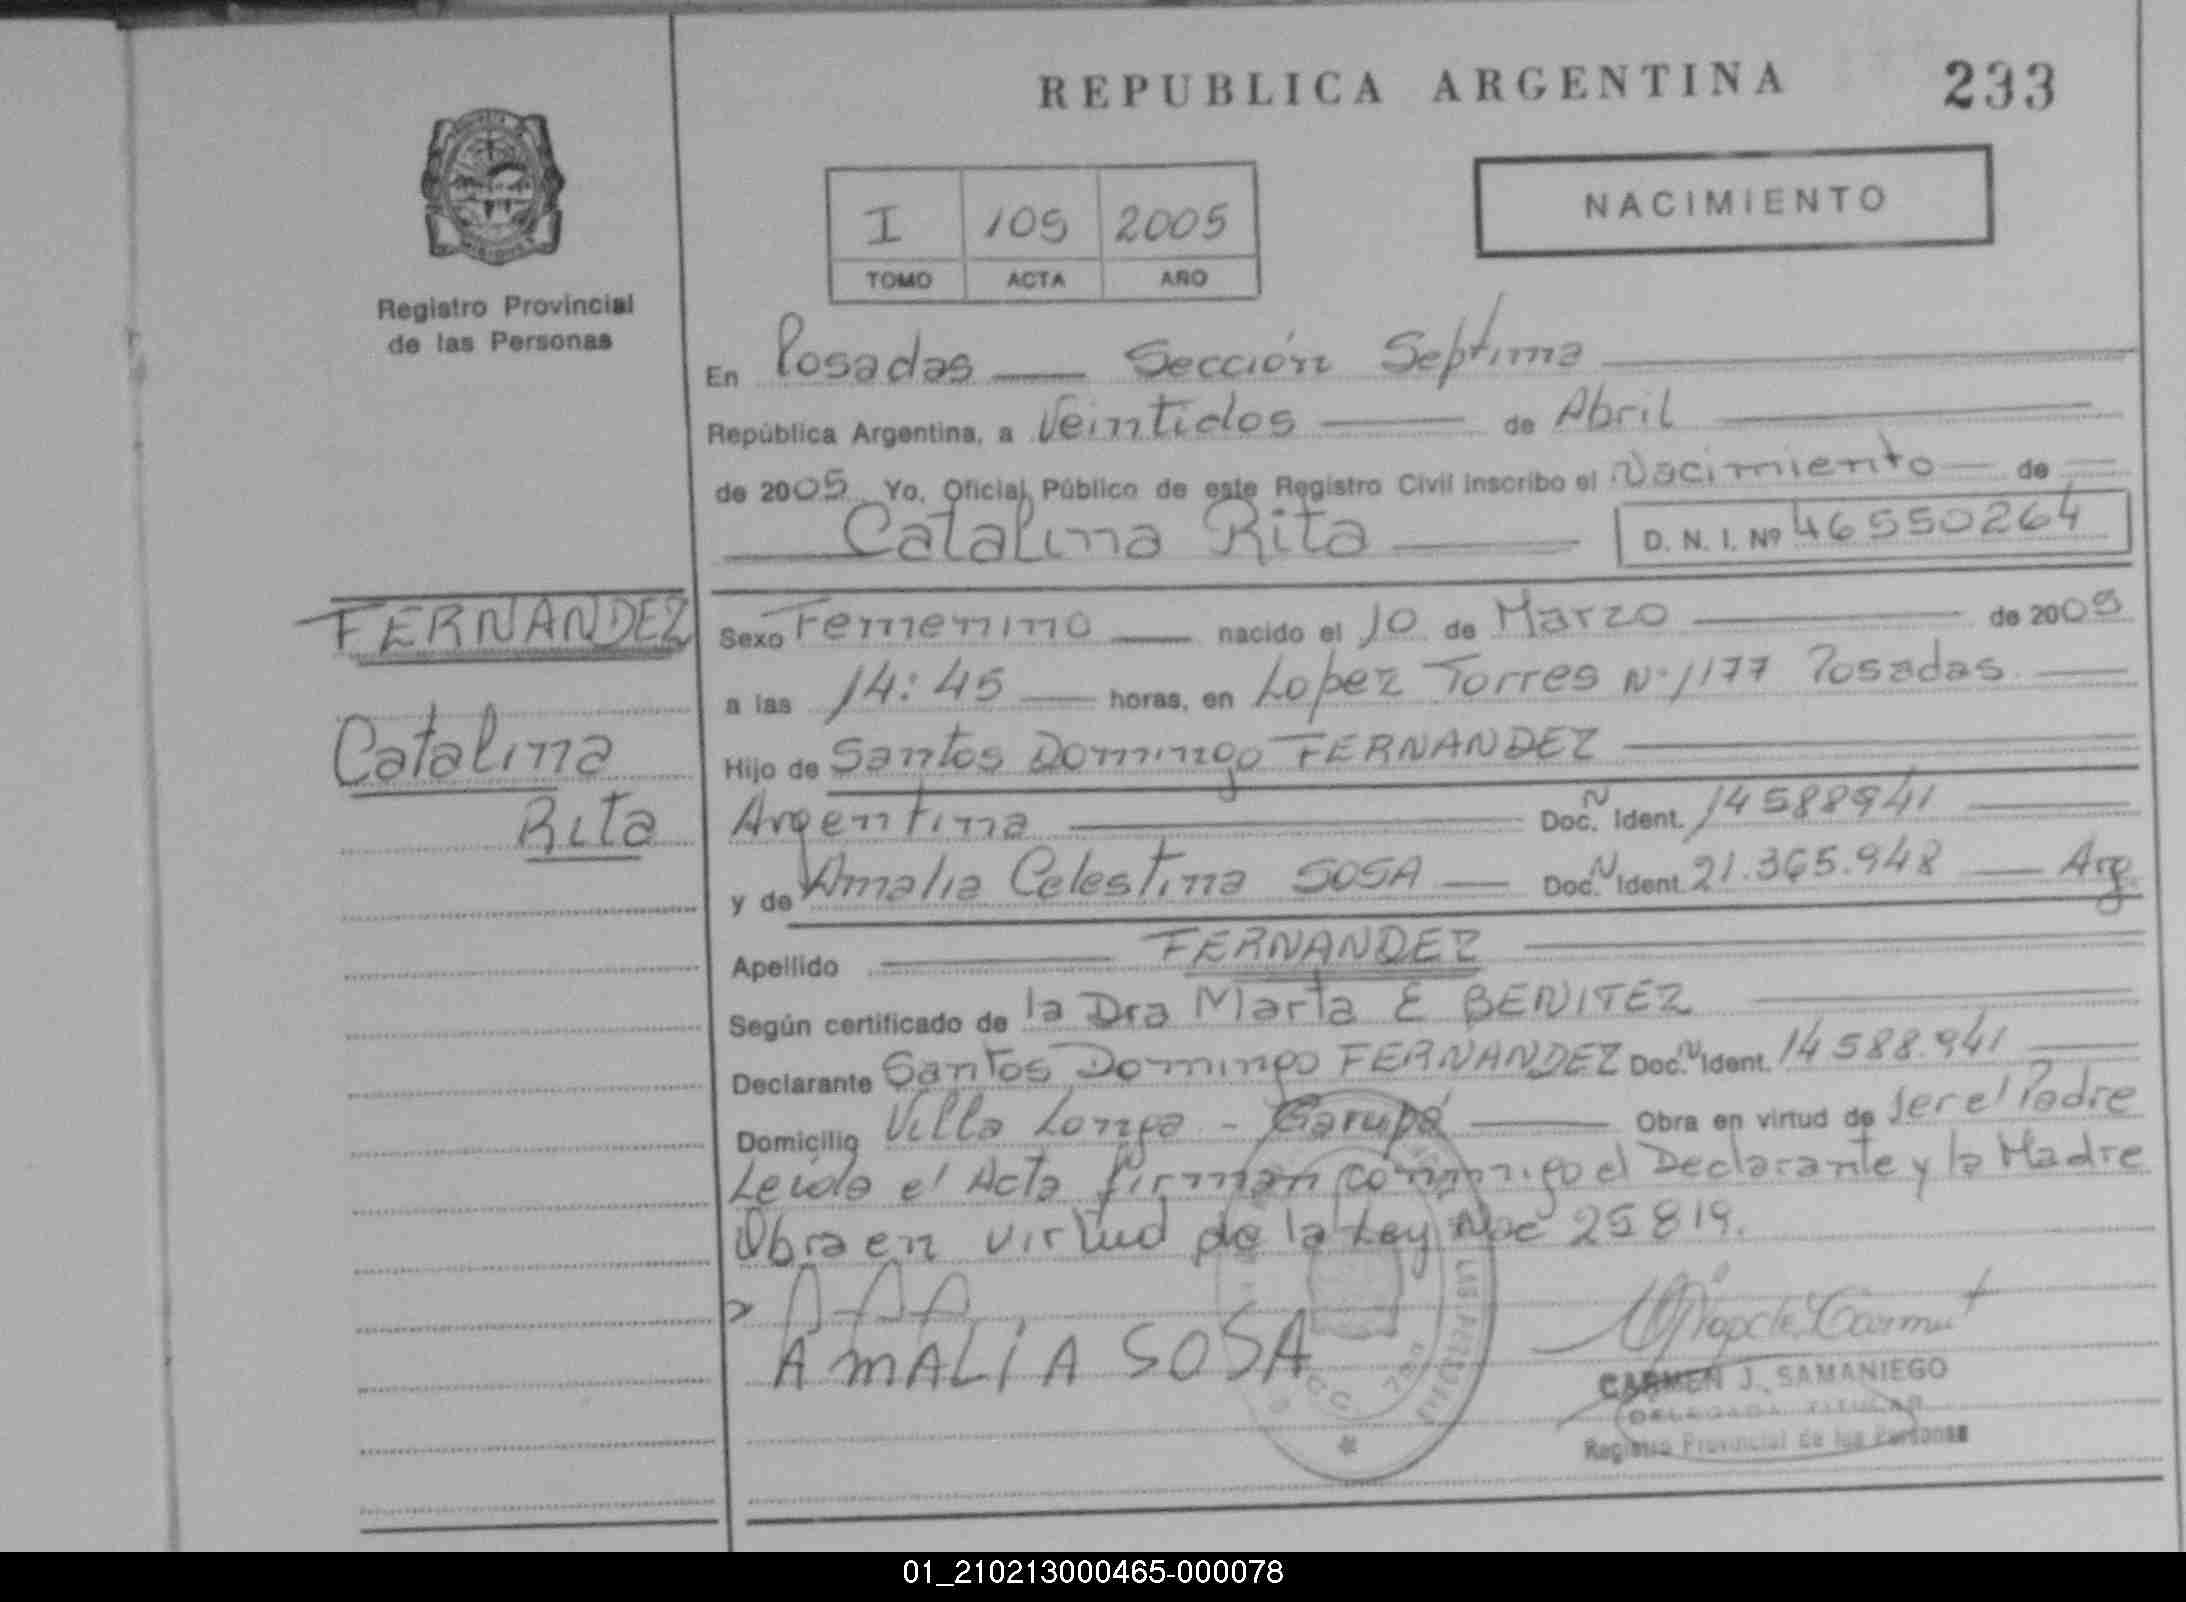 REPUBLICA ARGENTINA 233
NACIMIENTO
I 105 2005
TOMO ACTA AÑO
Registro Provincial
de las Personas
En Posadas — Sección Septima
República Argentina, a Veintidos — de Abril
de 2005 Yo, Oficial Público de este Registro Civil inscribo el Nacimiento — de
Catalina Rita D. N. I. Nº 46550264
FERNANDEZ
Catalina
Rita
Sexo Femenino — nacido el 10 de Marzo — de 2005
a las 14:45 — horas, en Lopez Torres Nº 1177 Posadas
Hijo de Santos Domingo FERNANDEZ
Argentina — Doc. N Ident. 14588941
y de Amalia Celestina SOSA — Doc. N Ident. 21.365.948 — Arg.
Apellido — FERNANDEZ
Según certificado de la Dra Marta E BENITEZ
Declarante Santos Domingo FERNANDEZ Doc. N Ident. 14588.941
Domicilio Villa Longa - Garupá — Obra en virtud de ser el Padre
Leída el Acta firman conmigo el Declarante y la Madre
Obra en virtud de la Ley Nac 25819.
AMALIA SOSA
CARMEN J. SAMANIEGO
DELEGADA TITULAR
Registro Provincial de las Personas
01_210213000465-000078